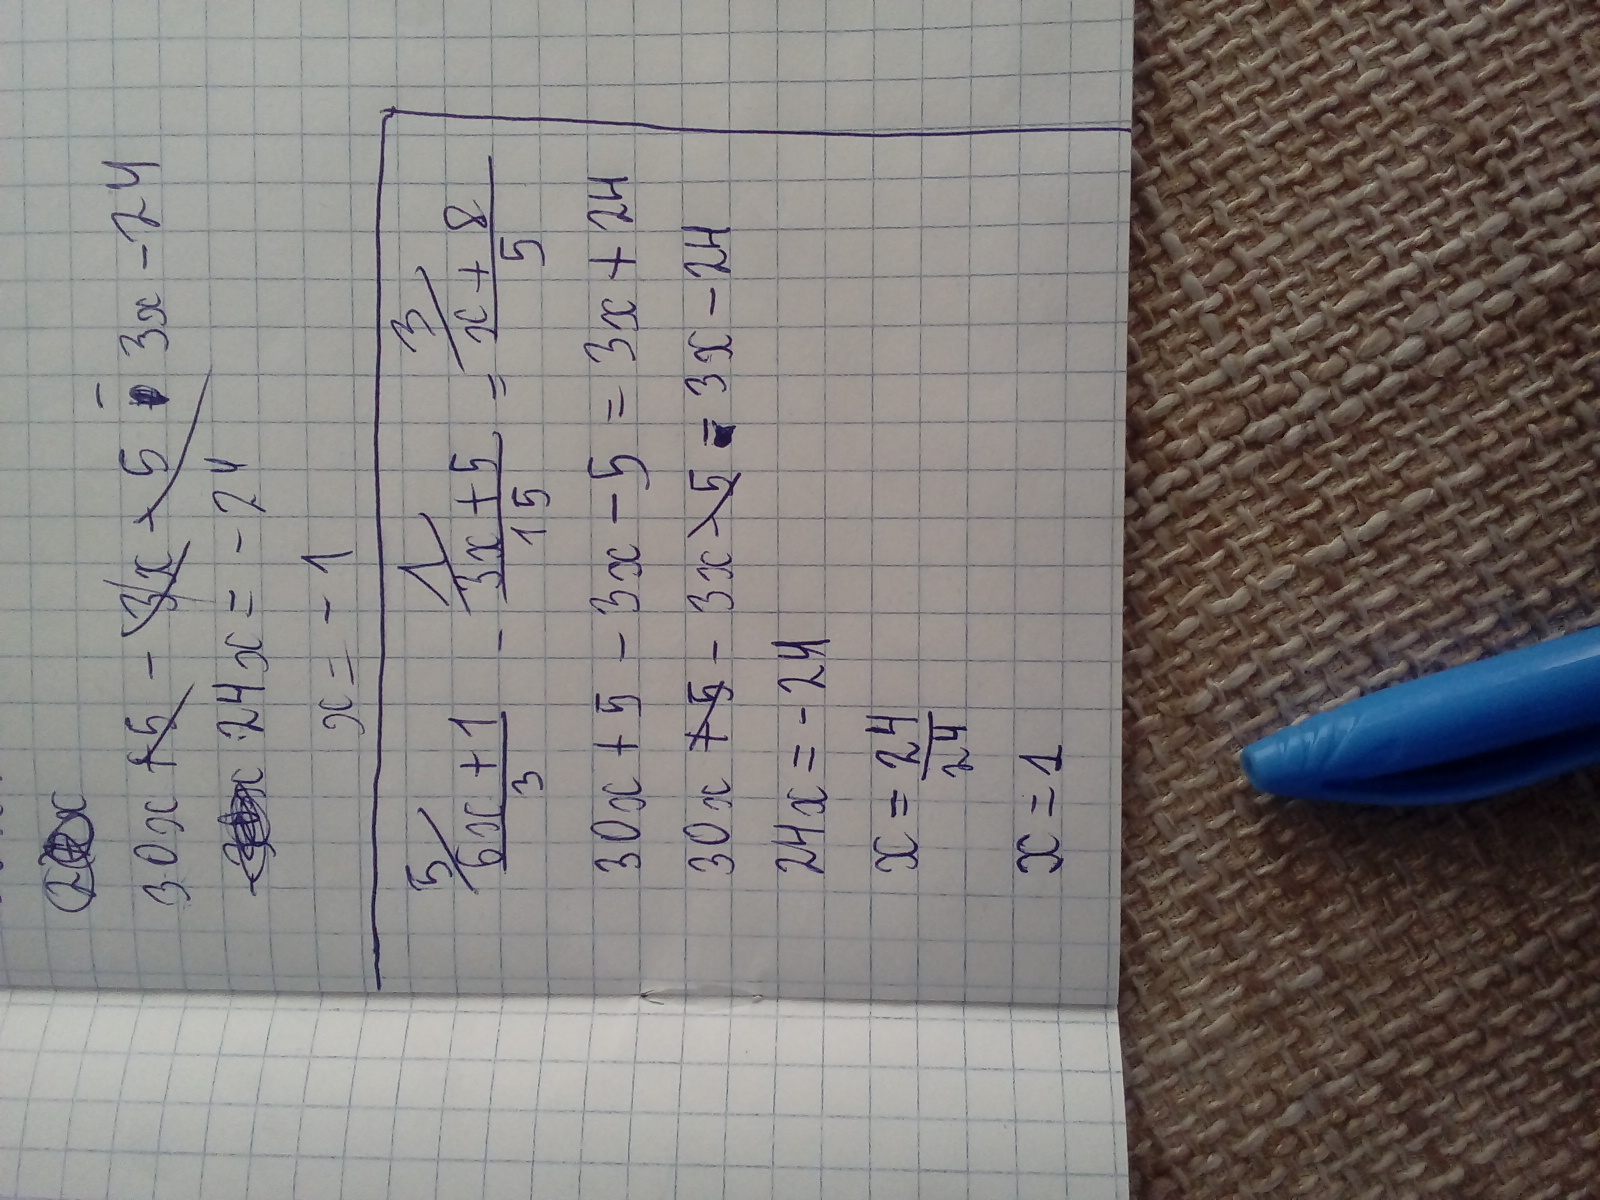 30x + 5 - 3x - 5 - 3x - 24
24x = - 24
x = - 1
5 1 3
6x + 1 - 3x + 5 = x + 8
3 15 5
30x + 5 - 3x - 5 = 3x + 24
30x + 5 - 3x - 5 = 3x - 24
24x = - 24
x = 24/24
x = 1